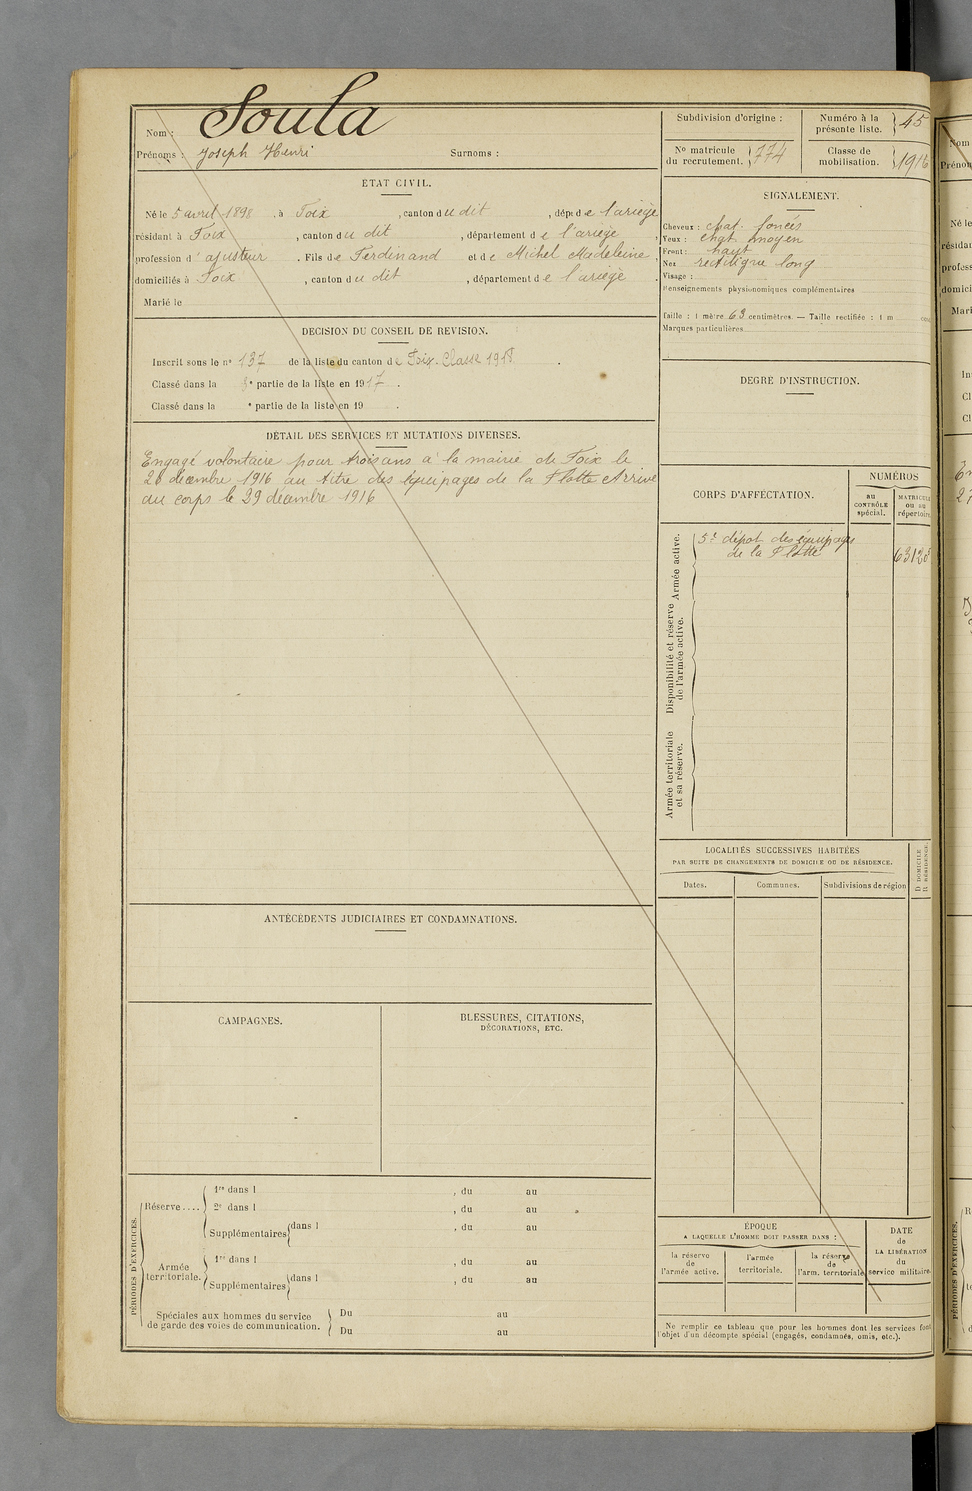 Nom : Soula
Prénoms : Joseph Henri Surnoms :
ETAT CIVIL.
Né le 5 avril 1898, à Foix, canton du dit, dépt de l'ariège
résidant à Foix, canton du dit, département de l'ariège,
profession d'ajusteur. Fils de Ferdinand et de Michel Madeleine,
domiciliés à Foix, canton du dit, département de l'ariège.
Marié le
DECISION DU CONSEIL DE REVISION.
Inscrit sous le n° 137 de la liste du canton de Foix. Classe 1918.
Classé dans la e partie de la liste en 1917.
Classé dans la e partie de la liste en 19 .
DÉTAIL DES SERVICES ET MUTATIONS DIVERSES.
Engagé volontaire pour trois ans à la mairie de Foix le
décembre 1916 au titre des équipages de la Flotte Arrivé
au corps le 29 décembre 1916
ANTÉCÉDENTS JUDICIAIRES ET CONDAMNATIONS.
CAMPAGNES.
BLESSURES, CITATIONS,
DÉCORATIONS, ETC.
PÉRIODES D'EXERCICES.
Réserve....
1re dans l , du au
2e dans l , du au
Supplémentaires dans l , du au
Armée
territoriale.
1re dans l , du au
Supplémentaires dans l , du au
Spéciales aux hommes du service
de garde des voies de communication.
Du au
Du au
Subdivision d'origine :
Numéro à la
présente liste. 45
No matricule
du recrutement. 774
Classe de
mobilisation. 1916
SIGNALEMENT.
Cheveux : chat. foncés
Yeux : chat moyen
Front : haut
Nez rectiligne long
Visage :
Renseignements physionomiques complémentaires
Taille : 1 mètre 63 centimètres. — Taille rectifiée : 1 m
Marques particulières
DEGRÉ D'INSTRUCTION.
CORPS D'AFFECTATION.
NUMÉROS
au
CONTRÔLE
spécial.
MATRICULE
ou au
répertoire
Armée active.
5e dépôt des équipages
de la Flotte
Disponibilité et réserve
de l'armée active.
Armée territoriale
et sa réserve.
LOCALITÉS SUCCESSIVES HABITÉES
PAR SUITE DE CHANGEMENTS DE DOMICILE OU DE RÉSIDENCE.
D DOMICILE
R RÉSIDENCE.
Dates.
Communes.
Subdivisions de région
ÉPOQUE
A LAQUELLE L'HOMME DOIT PASSER DANS :
la réserve
de
l'armée active.
l'armée
territoriale.
la réserve
de
l'arm. territoriale
DATE
de
LA LIBÉRATION
du
service militaire.
Ne remplir ce tableau que pour les hommes dont les services font
l'objet d'un décompte spécial (engagés, condamnés, omis, etc.).